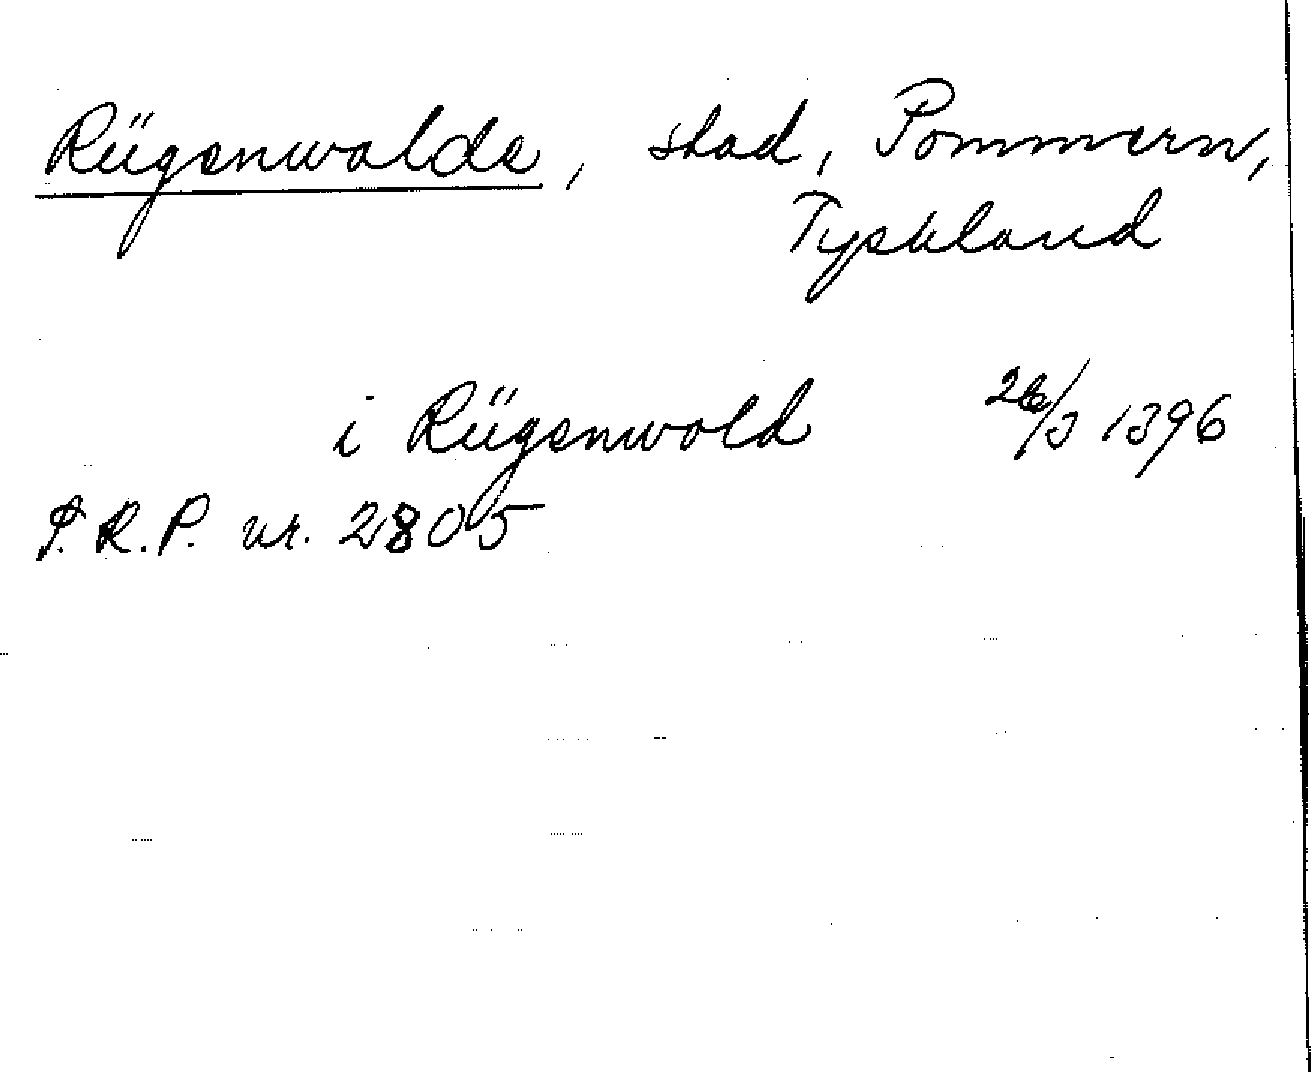 Rügenwalde, stad, Pommern,
Tyskland
i Rügenwold 26/3 1396
P.R.P. nr. 2805